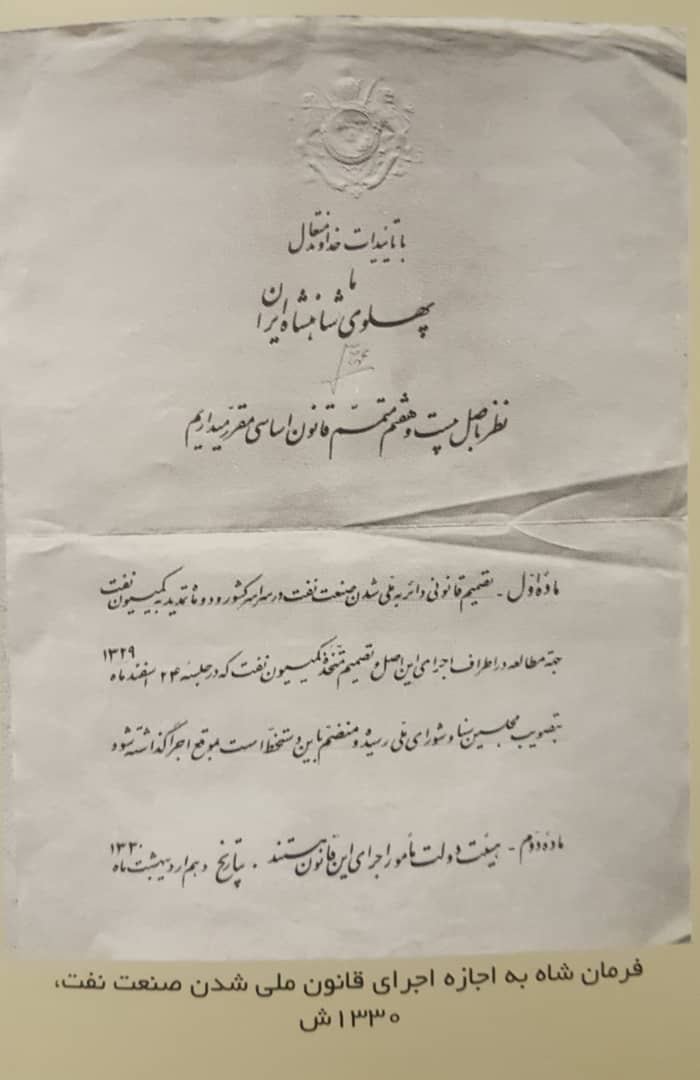 با تاییدات خداوند متعال
ما
پهلوی شاهنشاه ایران
نظر باصل بیست و هفتم متمم قانون اساسی مقرر میداریم
ماده اول - تصمیم قانونی دائر به ملی شدن صنعت نفت در سراسر کشور و دو ماه تمدید به کمیسیون نفت
جهة مطالعه در اطراف اجرای این اصل و تصمیم متخذه کمیسیون نفت که در جلسه ۲۴ اسفند ماه ۱۳۲۹
بتصویب مجلسین سنا و شورای ملی رسیده و منضم باین دستخط است بموقع اجرا گذاشته شود
ماده دوم - هیئت دولت مأمور اجرای این قانون هستند . بتاریخ دهم اردیبهشت ماه ۱۳۳۰
فرمان شاه به اجازه اجرای قانون ملی شدن صنعت نفت،
۱۳۳۰ش